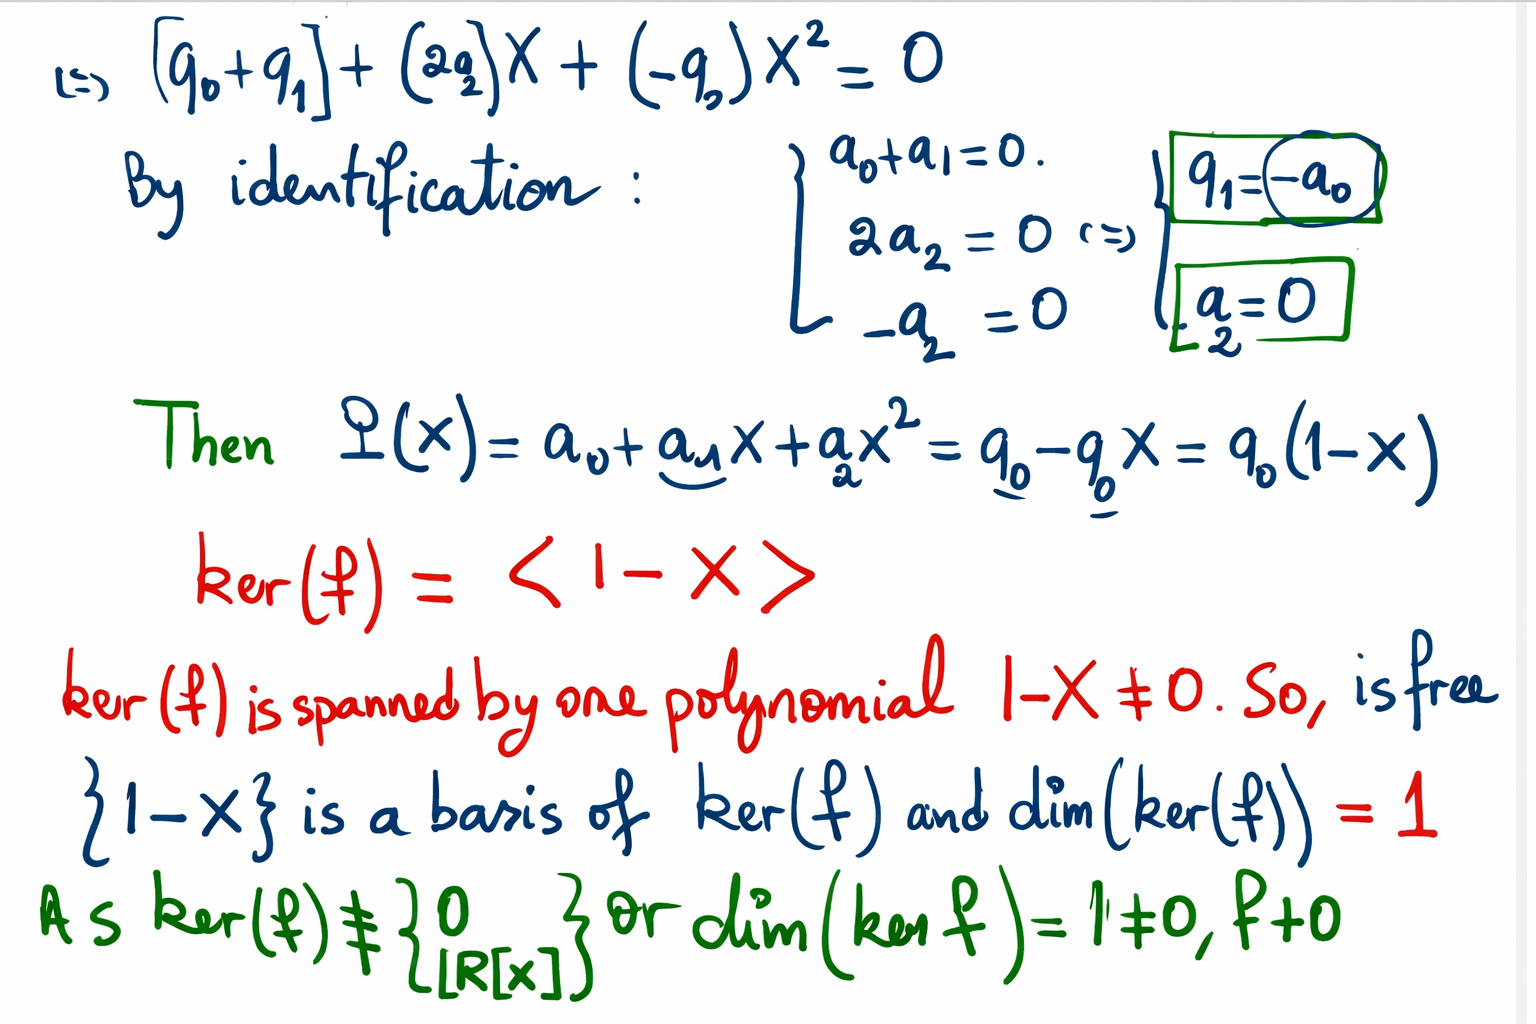 (=) [a₀+a₁] + (2a₂)X + (-a₂)X² = 0
By identification : { a₀+a₁=0. { a₁=-a₀
2a₂ = 0 (=)
-a₂ = 0 a₂=0
Then P(X) = a₀+a₁X+a₂X² = a₀-a₀X = a₀(1-X)
ker(f) = <1-X>
ker(f) is spanned by one polynomial 1-X ≠0. So, is free
{1-X} is a basis of ker(f) and dim(ker(f)) = 1
As ker(f) ≠ {0 ℝ[X]} or dim(ker f) = 1≠0, f+0